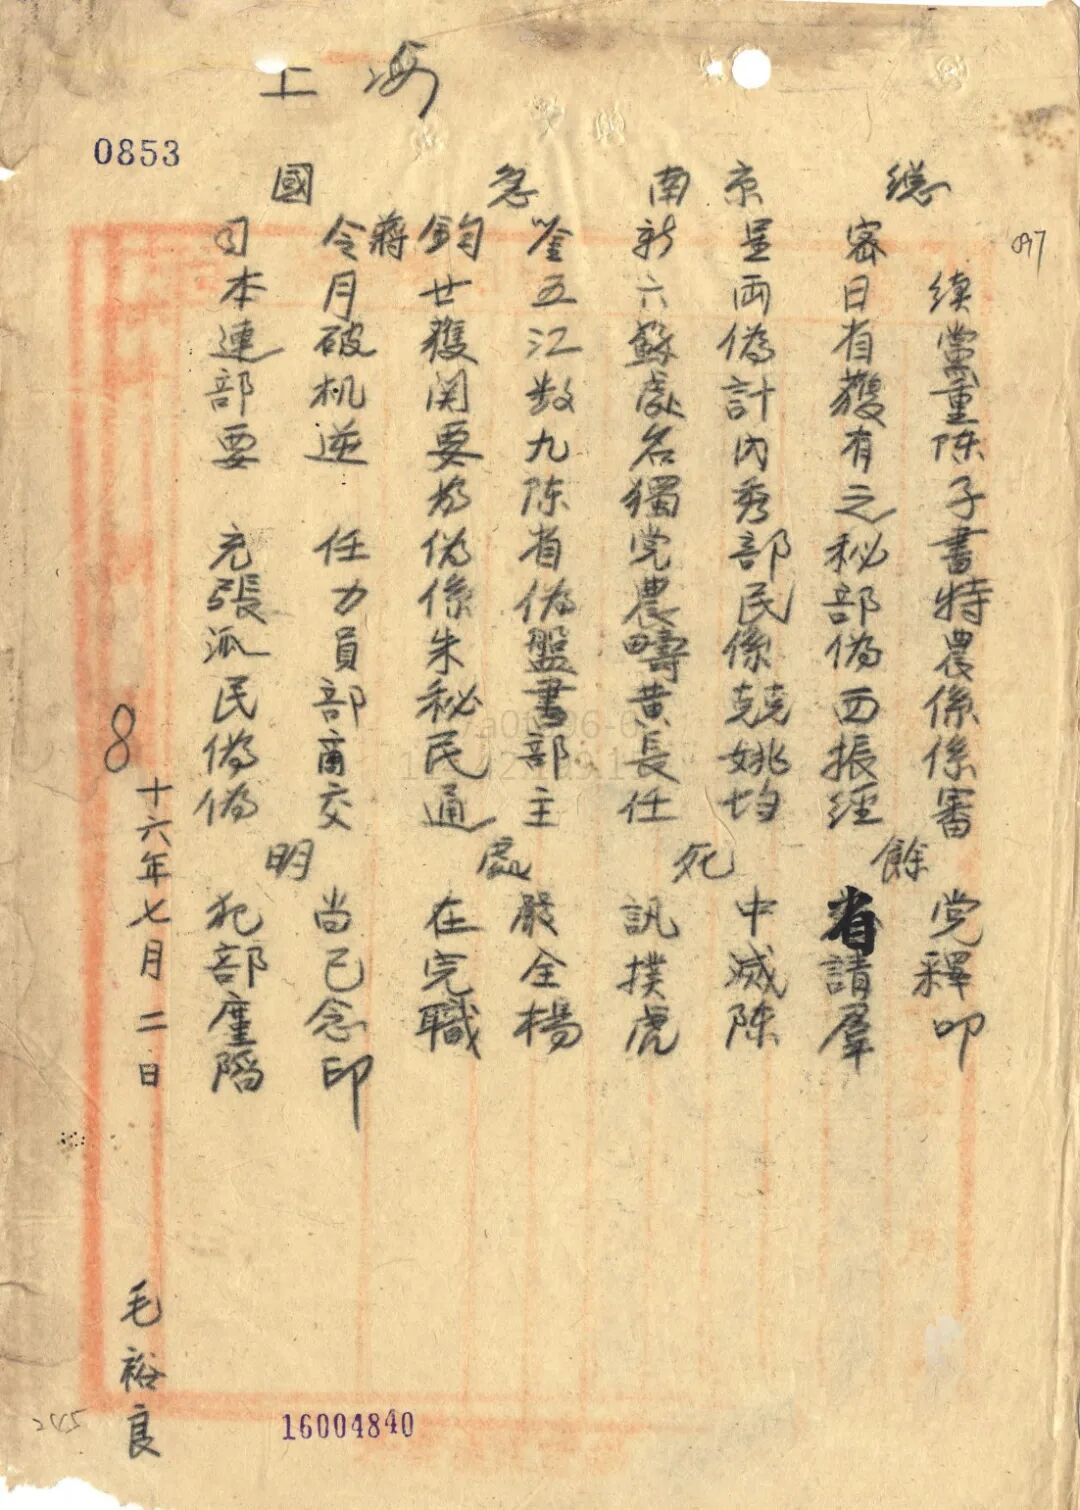 上海
0853
097
國急南京總
司令蔣鈞鑒新呈密
本月廿五六兩日續
連破獲江蘇偽省黨
部机関数處計獲重
要逆要九名內有陳
為陳獨秀之子
充任偽省党部秘書
張力係偽農民部特
派員朱盤疇係偽農
民部秘書黄競西係
偽商民部長姚振係
偽交通主任均經審
明處死餘
犯尚在嚴訊中省党
部已完全撲滅請釋
廑念職楊虎陳羣叩
陷印
8
十六年七月二日
毛裕良
16004840
245